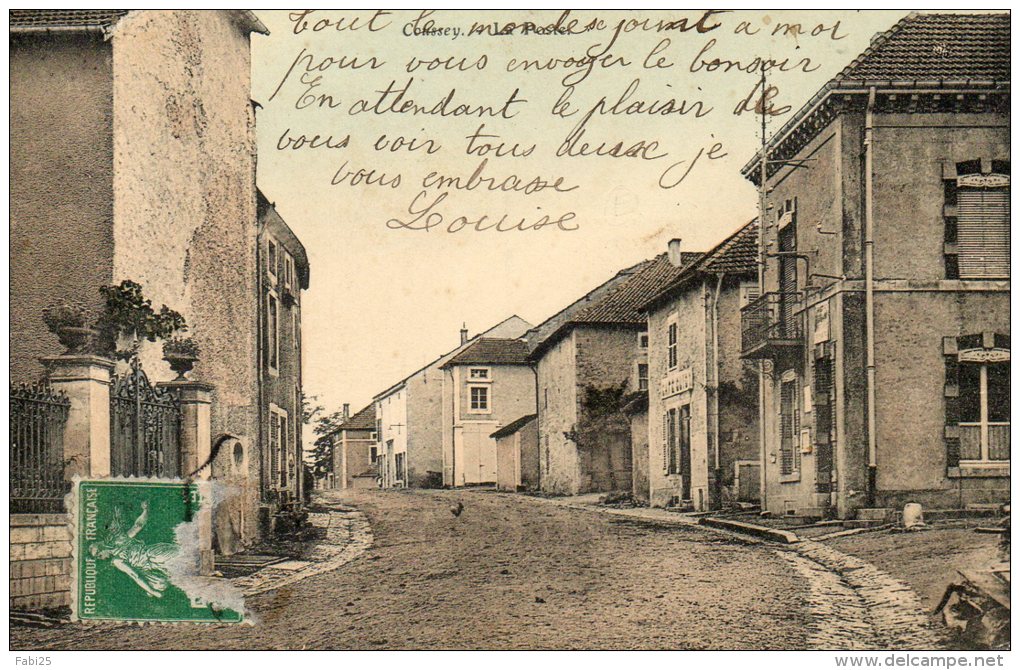 Tout le monde se joint a moi
Coussey. - La Poste.
pour vous envoyer le bonsoir
En attendant le plaisir de
vous voir tous deux je
vous embrasse
Louise
REPUBLIQUE FRANÇAISE
Fabi25
www.delcampe.net